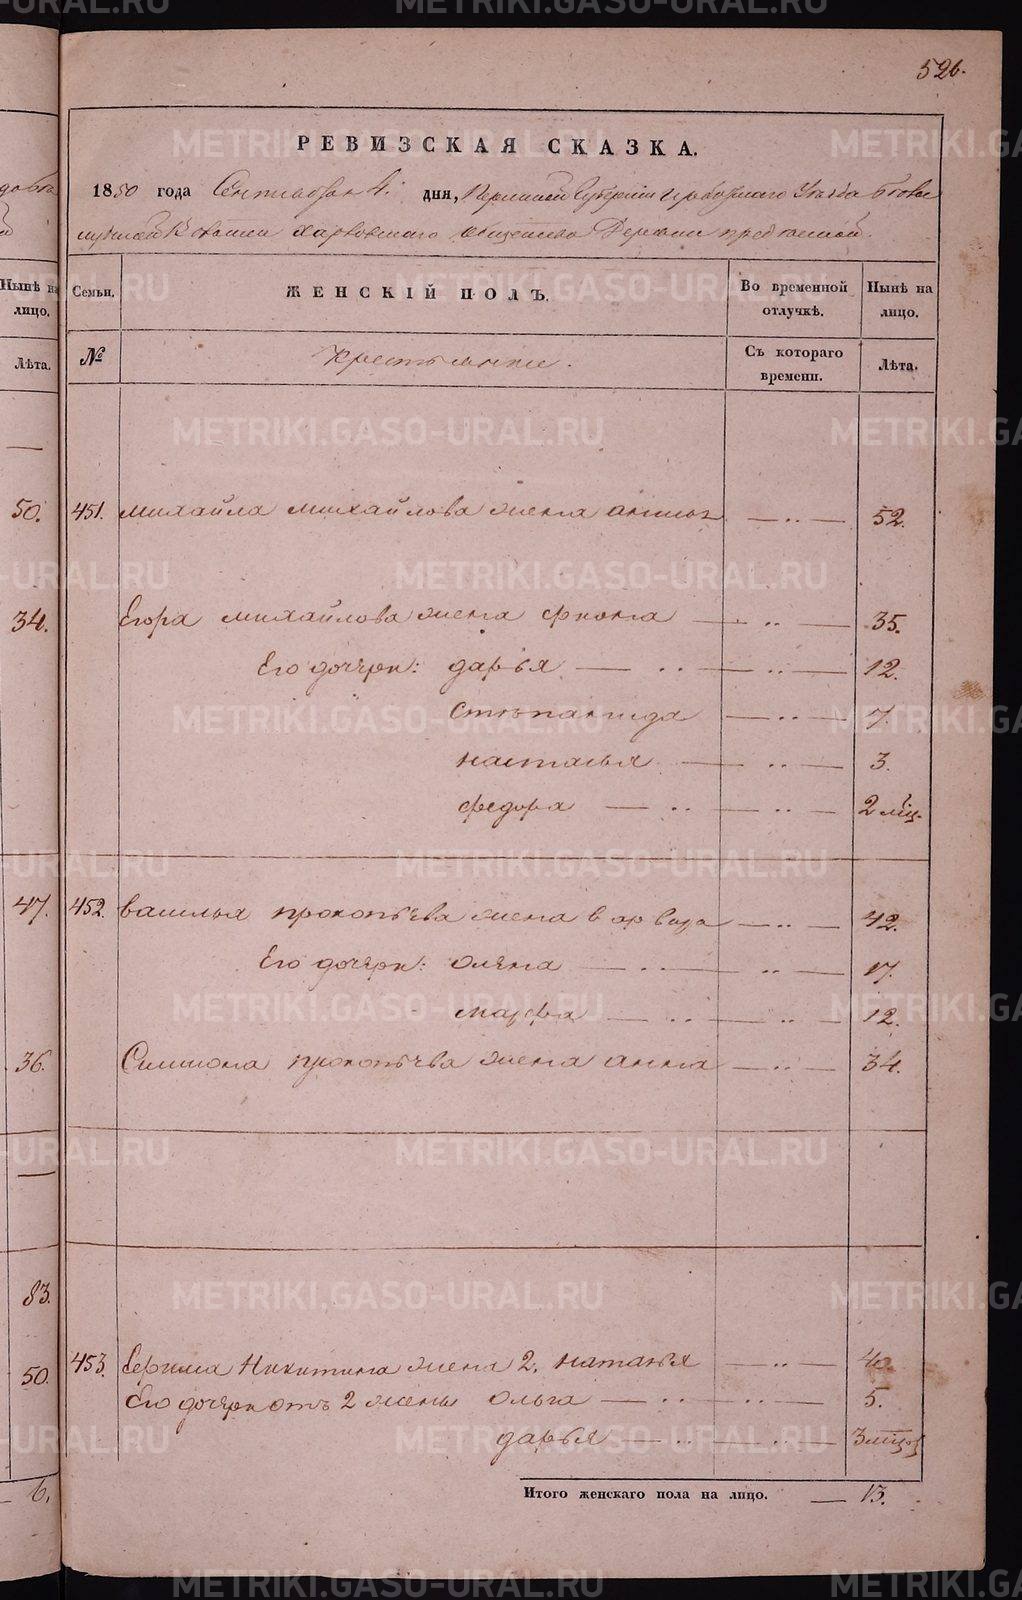 526.
РЕВИЗСКАЯ СКАЗКА.
1850 года Сентября 4. дня, Пермской Губернии Ирбитскаго Уезда
Харловскаго общества Деревни
Ныне на лицо.
Семьи.
ЖЕНСКІЙ ПОЛЪ.
Во временной отлучкѣ.
Нынѣ на лицо.
Лѣта.
№
Крестьянки.
Съ котораго времени.
Лѣта.
50. 451. михайла михайлова жена анна — „ — 52.
34. Егора михайлова жена — „ — 35.
Его дочери: дарья — „ — „ — 12.
степанида — „ — 7.
настасья — „ — 3.
федора — „ — „ — 2 мц.
47. 452. василья прокопьева жена — „ — 42.
Его дочери: олена — „ — „ — 17.
марфа — „ — „ — 12.
36. Симиона прокопьева жена анна — „ — 34.
83.
50. 453. Никитина жена 2. наталья — „ — 40.
Его дочери отъ 2 жены ольга — „ — „ — 5.
дарья — „ — „ — 3 мцов
6. Итого женскаго пола на лицо. — 13.
METRIKI.GASO-URAL.RU